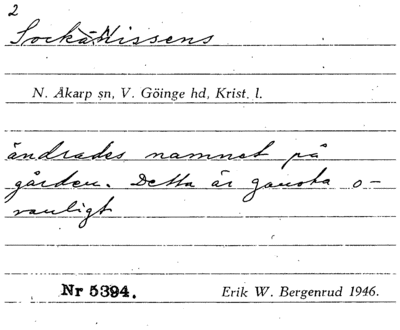 2
Sockåsissens
N. Åkarp sn, V. Göinge hd, Krist. l.
ändrades namnet på
gården. Detta är ganska o-
vanligt
Nr 5394. Erik W. Bergenrud 1946.